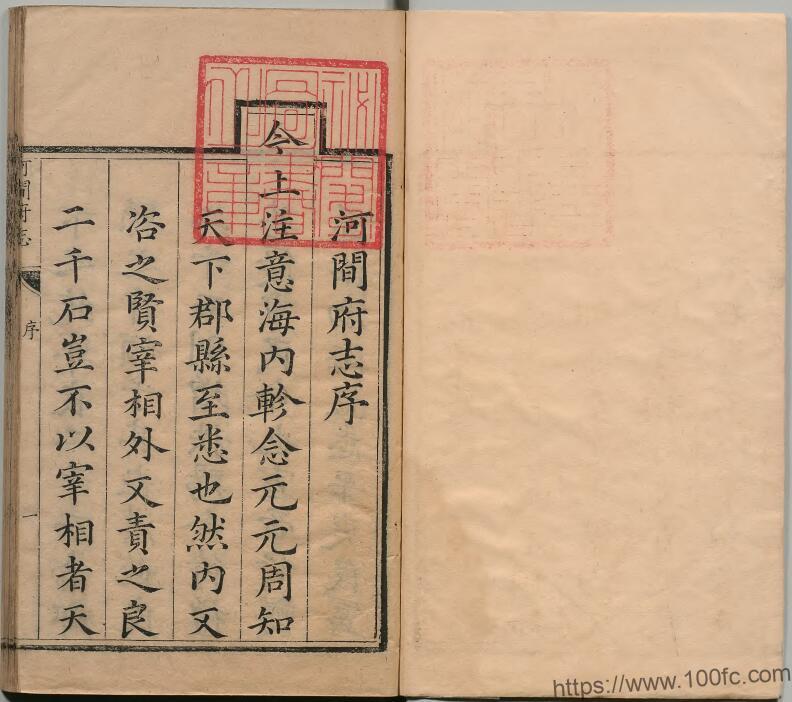 河間府志序
今上注意海內軫念元元周知
天下郡縣至悉也然內又
咨之賢宰相外又責之良
二千石豈不以宰相者天
河間府志
序
一
https://www.100fc.com